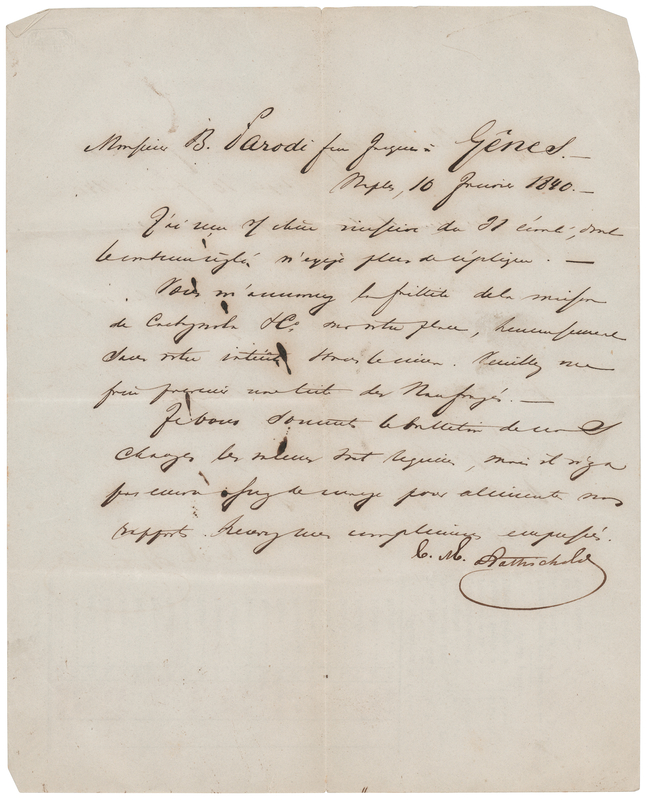 Monsieur B. Parodi feu Jacques à Gênes. —
Naples, 10 Janvier 1840. —
J'ai reçu V/ chère du 31 écoulé, dont
le contenu réglé n'exige plus de réplique. —
Vous m'annoncez la faillite de la maison
de & Cie. sur votre place, heureusement
sans votre intérêt . Veuillez me
faire parvenir une liste des Naufragés. —
Je vous soumets le bulletin de nos
changes, les valeurs sont , mais il n'y a
pas encore assez de marge pour alimenter nos
rapports. Recevez mes complimens empressés.
C. M. Rothschild